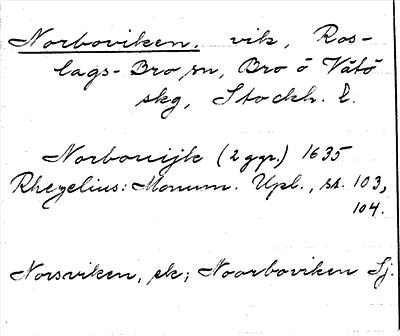 Norboviken, vik, Ros-
lags-Bro sn, Bro o Vätö
skg, Stockh. l.
Norbouijk (2 ggr.) 1635
Rhezelius: Monum. Upl., s. 103,
104.
Norsviken, ek; Noorboviken Sj.